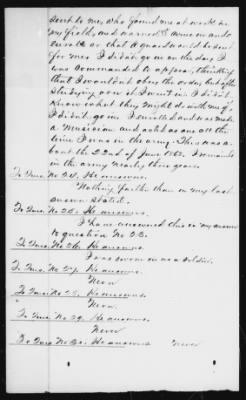 sent to me, who found me at work in
my field, and warned me to come in and
enroll or that a guard would be sent
for me. I didn't go in on the day I
was commanded to appear, thinking
that I wouldn't obey the order, but after
studying over it I went in I didn't
know what they might do with me if
I didn't go in I enrolled and was made
a musician and acted as one all the
time I was in the army. This was a-
bout the 22nd of June 1862, I remained
in the army nearly three years.
To Ques. No 24. He answers.
Nothing further than in my last
answer stated.
To Ques. No 25. He answers.
I have answered this in my answer
to question No 23.
To Ques. No 26. He answers.
I was sworn in as a soldier.
To Ques. No 27. He answers.
Never
To Ques. No 28. He answers.
Never
To Ques. No 29. He answers.
Never
To Ques No 30. He answers Never